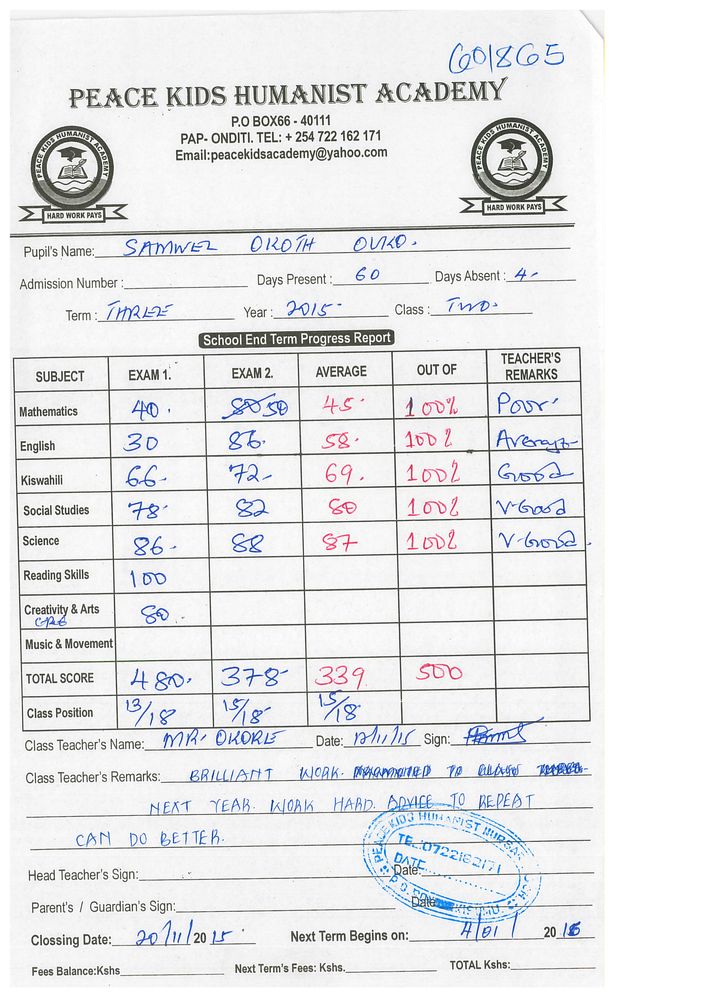 601865
PEACE KIDS HUMANIST ACADEMY
P.O BOX66 - 40111
PAP- ONDITI. TEL: + 254 722 162 171
Email:peacekidsacademy@yahoo.com
PEACE KIDS HUMANIST ACADEMY
HARD WORK PAYS
PEACE KIDS HUMANIST ACADEMY
HARD WORK PAYS
Pupil's Name: SAMWEL OKOTH OUKO.
Admission Number : Days Present : 60 Days Absent : 4-
Term : THREE Year : 2015 Class : TWO.
School End Term Progress Report
SUBJECT EXAM 1. EXAM 2. AVERAGE OUT OF TEACHER'S REMARKS
Mathematics 40. 50 45 100% Poor
English 30 86. 58. 100% Average
Kiswahili 66- 72- 69. 100% Good
Social Studies 78 82 80 100% V-Good
Science 86- 88 87 100% V-Good.
Reading Skills 100
Creativity & Arts 80
CRE
Music & Movement
TOTAL SCORE 480. 378- 339 500
Class Position 13/18 15/18 15/18
Class Teacher's Name: MR. OKORE Date: 12/11/15 Sign:
Class Teacher's Remarks: BRILLIANT WORK. TO CLASS
NEXT YEAR. WORK HARD. ADVICE TO REPEAT
CAN DO BETTER.
PEACE KIDS HUMANIST
TEL:0722162171
DATE
Head Teacher's Sign: Date:
Parent's / Guardian's Sign: Date
Clossing Date: 20/11/2015 Next Term Begins on: 4/01/ 2016
Fees Balance:Kshs Next Term's Fees: Kshs. TOTAL Kshs: